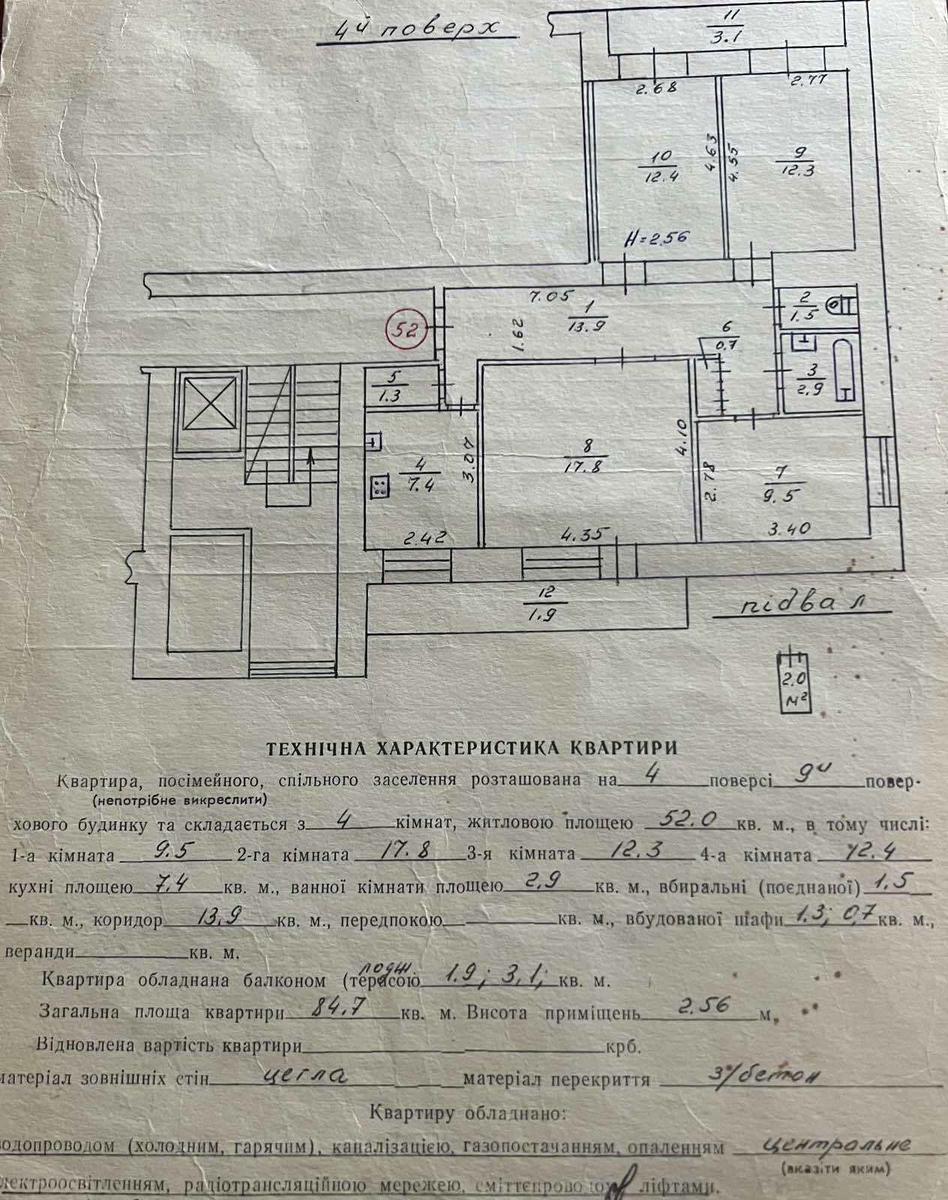 4й поверх
11
3.1
2.68
2.77
10
12.4
4.63
4.55
9
12.3
H=2.56
7.05
1
13.9
1.62
52
2
1.5
6
0.7
3
2.9
5
1.3
4
7.4
3.07
2.42
8
17.8
4.35
4.10
2.78
7
9.5
3.40
12
1.9
підвал
2.0
м²
ТЕХНІЧНА ХАРАКТЕРИСТИКА КВАРТИРИ
Квартира, посімейного, спільного заселення розташована на 4 поверсі 9и повер-
(непотрібне викреслити)
хового будинку та складається з 4 кімнат, житловою площею 52.0 кв. м., в тому числі:
1-а кімната 9.5 2-га кімната 17.8 3-я кімната 12.3 4-а кімната 12.4
кухні площею 7,4 кв. м., ванної кімнати площею 2,9 кв. м., вбиральні (поєднаної) 1.5
кв. м., коридор 13,9 кв. м., передпокою кв. м., вбудованої шафи 1.3; 0,7 кв. м.,
веранди кв. м.
лодж
Квартира обладнана балконом (терасою 1.9; 3,1; кв. м.
Загальна площа квартири 84.7 кв. м. Висота приміщень 2.56 м.
Відновлена вартість квартири крб.
матеріал зовнішніх стін цегла матеріал перекриття з/бетон
Квартиру обладнано:
одопроводом (холодним, гарячим), каналізацією, газопостачанням, опаленням центральне
(вказіти яким)
лектроосвітленням, радіотрансляційною мережею, сміттєпроводом, ліфтами.